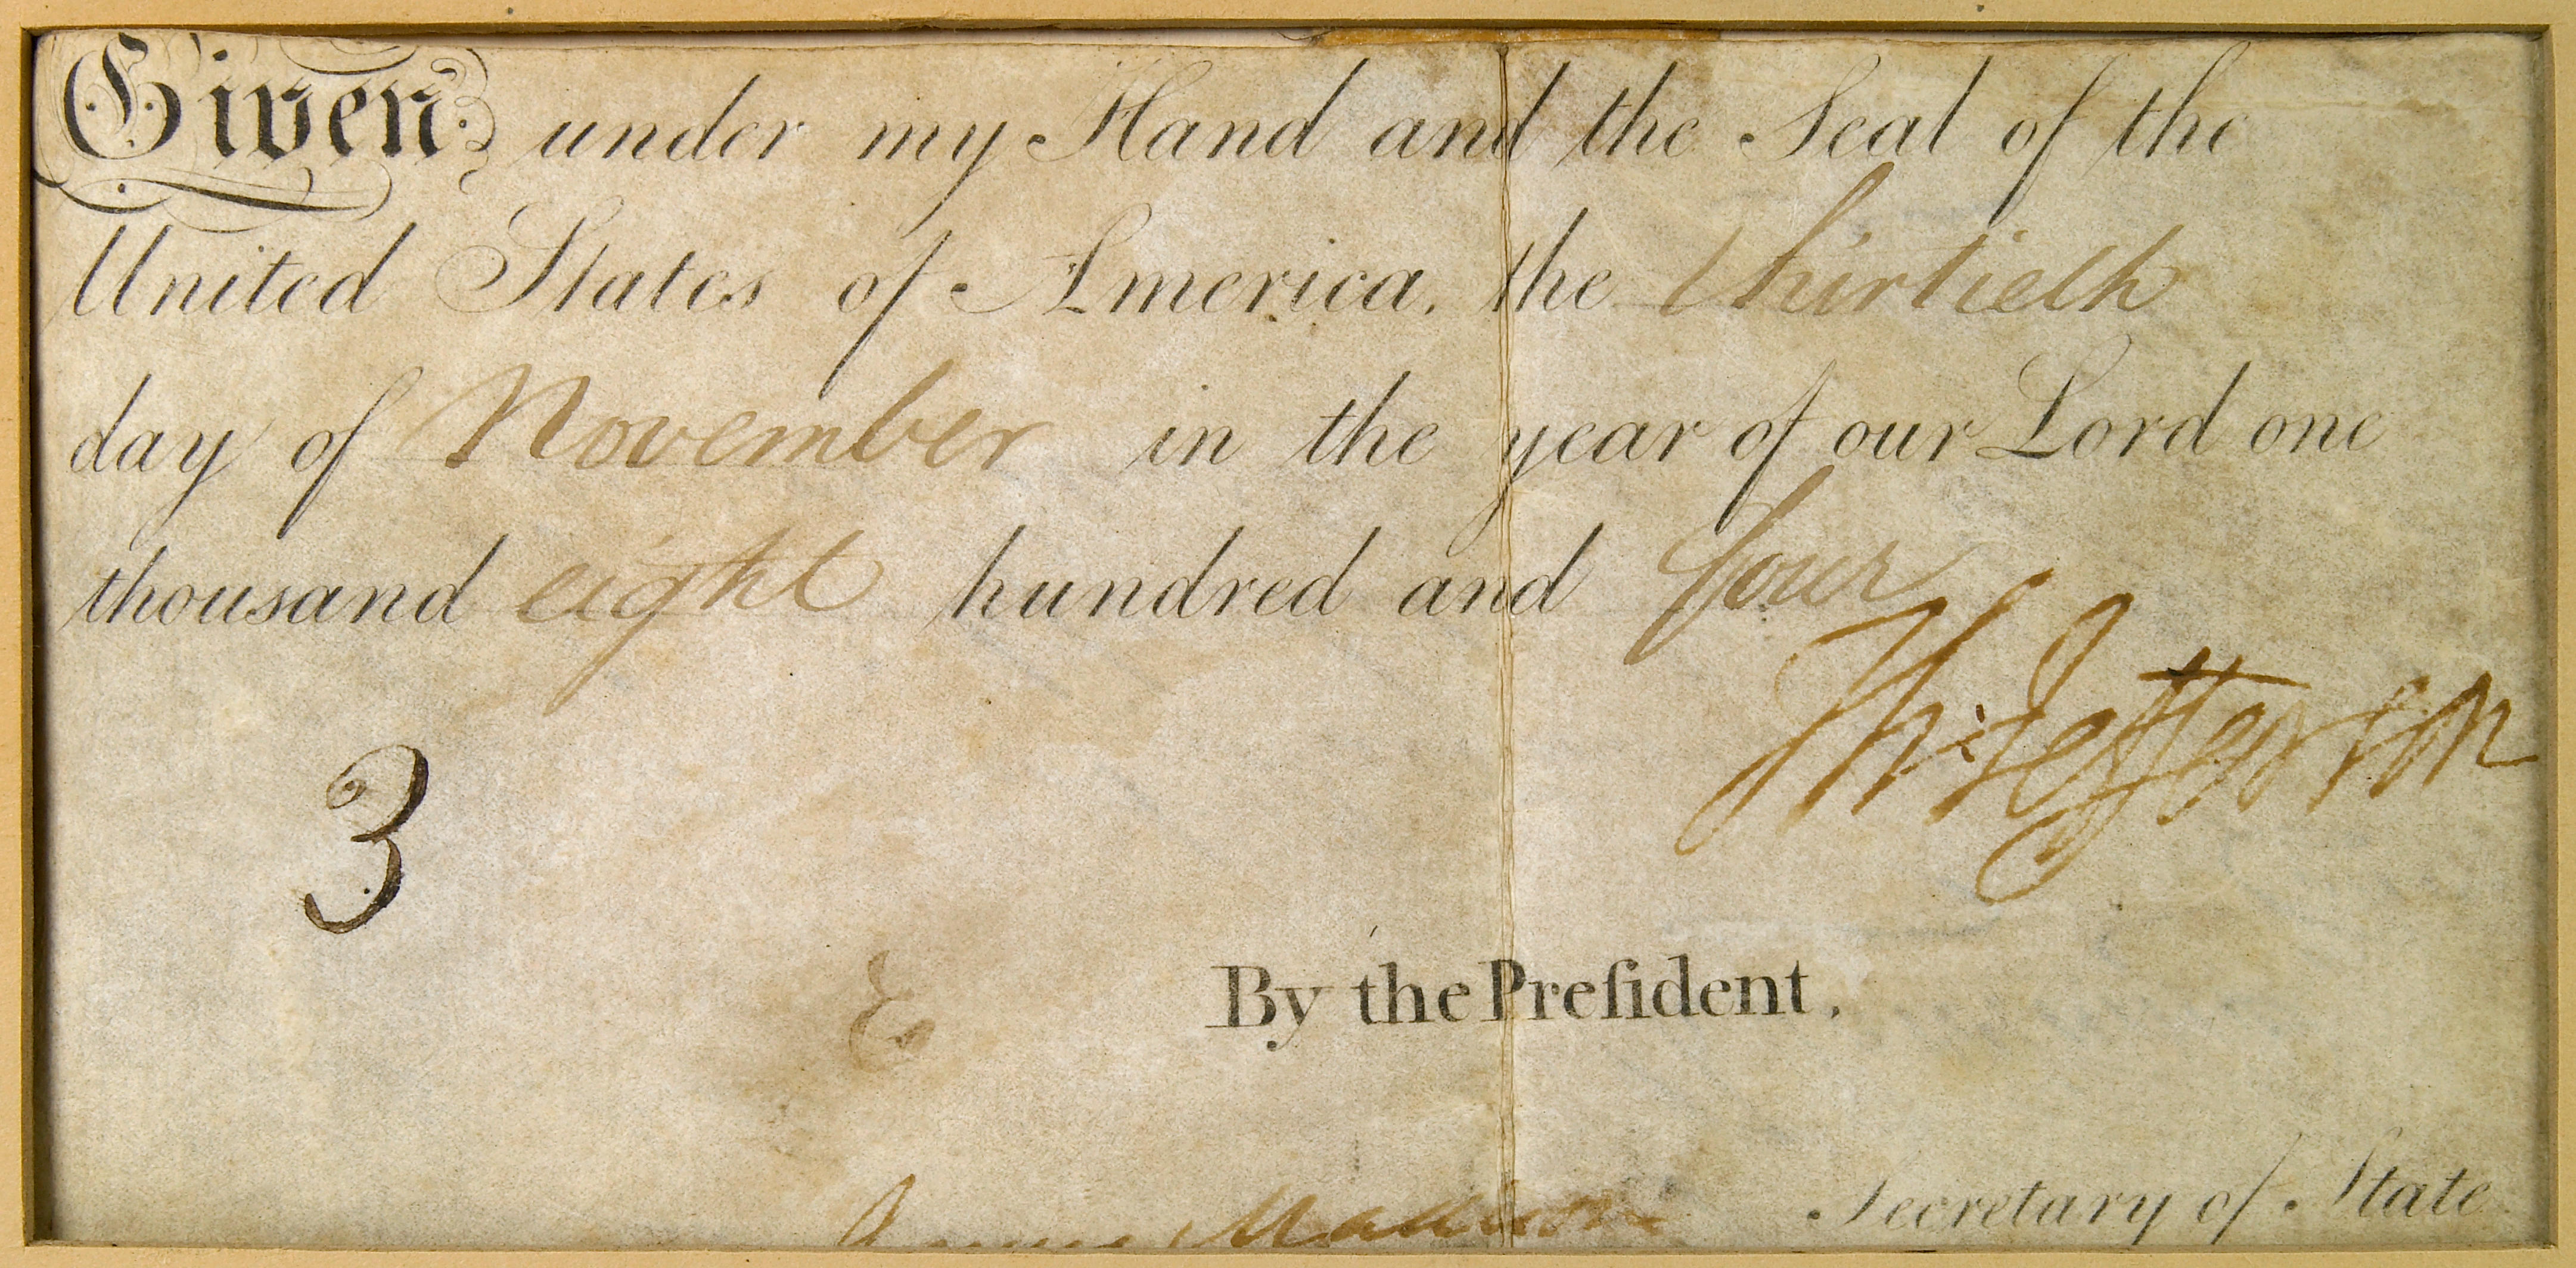 Given under my Hand and the Seal of the
United States of America, the Thirtieth
day of November in the year of our Lord one
thousand eight hundred and four
Th: Jefferson
3
By the Preſident.
James Madison Secretary of State